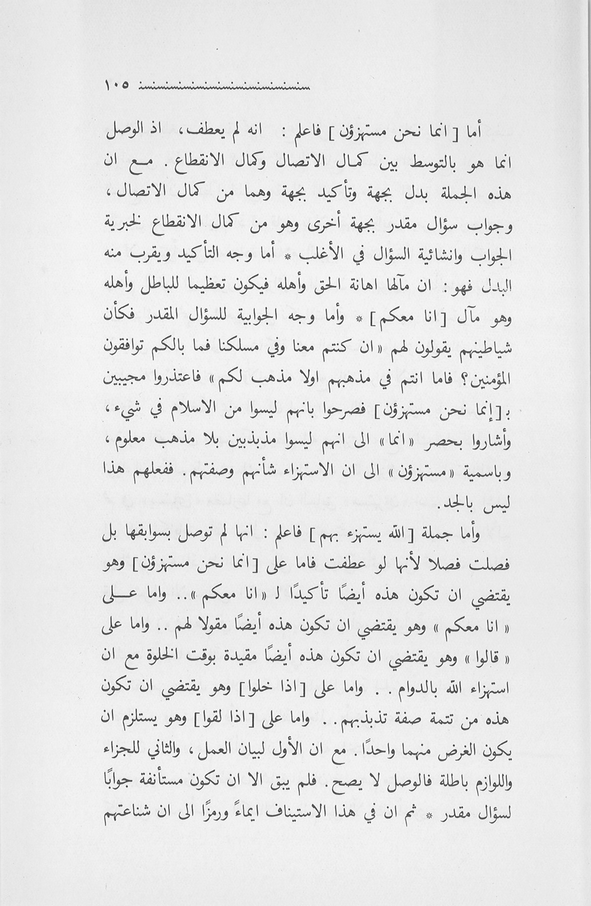 ١٠٥
أما [انما نحن مستهزؤن] فاعلم : انه لم يعطف، اذ الوصل
انما هو بالتوسط بين كمال الاتصال وكمال الانقطاع. مع ان
هذه الجملة بدل بجهة وتأكيد بجهة وهما من كمال الاتصال،
وجواب سؤال مقدر بجهة أخرى وهو من كمال الانقطاع لخبرية
الجواب وانشائية السؤال في الأغلب * أما وجه التأكيد ويقرب منه
البدل فهو: ان مآلها اهانة الحق وأهله فيكون تعظيما للباطل وأهله
وهو مآل [انا معكم] * وأما وجه الجوابية للسؤال المقدر فكأن
شياطينهم يقولون لهم «ان كنتم معنا وفي مسلكنا فما بالكم توافقون
المؤمنين؟ فاما انتم في مذهبهم اولا مذهب لكم» فاعتذروا مجيبين
بـ[إنما نحن مستهزؤن] فصرحوا بانهم ليسوا من الاسلام في شيء،
وأشاروا بحصر «انما» الى انهم ليسوا مذبذبين بلا مذهب معلوم،
وباسمية «مستهزؤن» الى ان الاستهزاء شأنهم وصفتهم. ففعلهم هذا
ليس بالجد.
وأما جملة [الله يستهزء بهم] فاعلم : انها لم توصل بسوابقها بل
فصلت فصلا لأنها لو عطفت فاما على [انما نحن مستهزؤن] وهو
يقتضي ان تكون هذه أيضًا تأكيدًا لـ «انا معكم».. واما على
«انا معكم» وهو يقتضي ان تكون هذه أيضًا مقولا لهم .. واما على
«قالوا» وهو يقتضي ان تكون هذه أيضًا مقيدة بوقت الخلوة مع ان
استهزاء الله بالدوام .. واما على [اذا خلوا] وهو يقتضي ان تكون
هذه من تتمة صفة تذبذبهم.. واما على [اذا لقوا] وهو يستلزم ان
يكون الغرض منهما واحدًا. مع ان الأول لبيان العمل، والثاني للجزاء
واللوازم باطلة فالوصل لا يصح. فلم يبق الا ان تكون مستأنفة جوابًا
لسؤال مقدر * ثم ان في هذا الاستيناف ايماءً ورمزًا الى ان شناعتهم